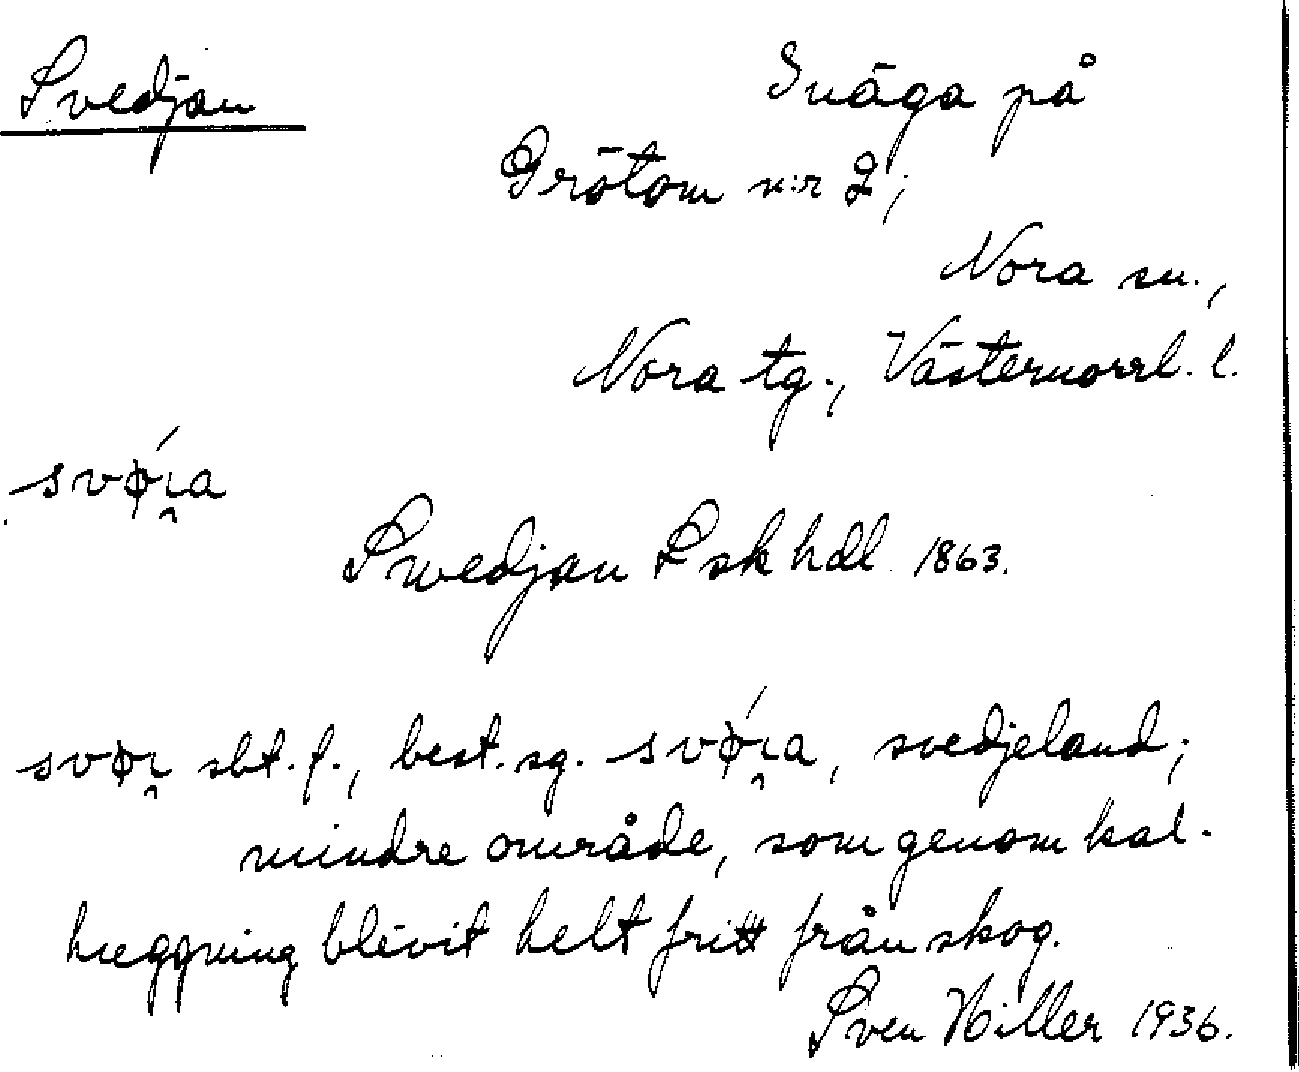 Svedjan
Inäga på
Grötom n:r 2;
Nora sn.,
Nora tg., Västernorrl. l.
svøí̯a
Swedjan L sk hdl 1863.
svøi̯ sbt. f., best. sg. svøí̯a, svedjeland;
mindre område, som genom kal-
huggning blevit helt fritt från skog.
Sven Hiller 1936.